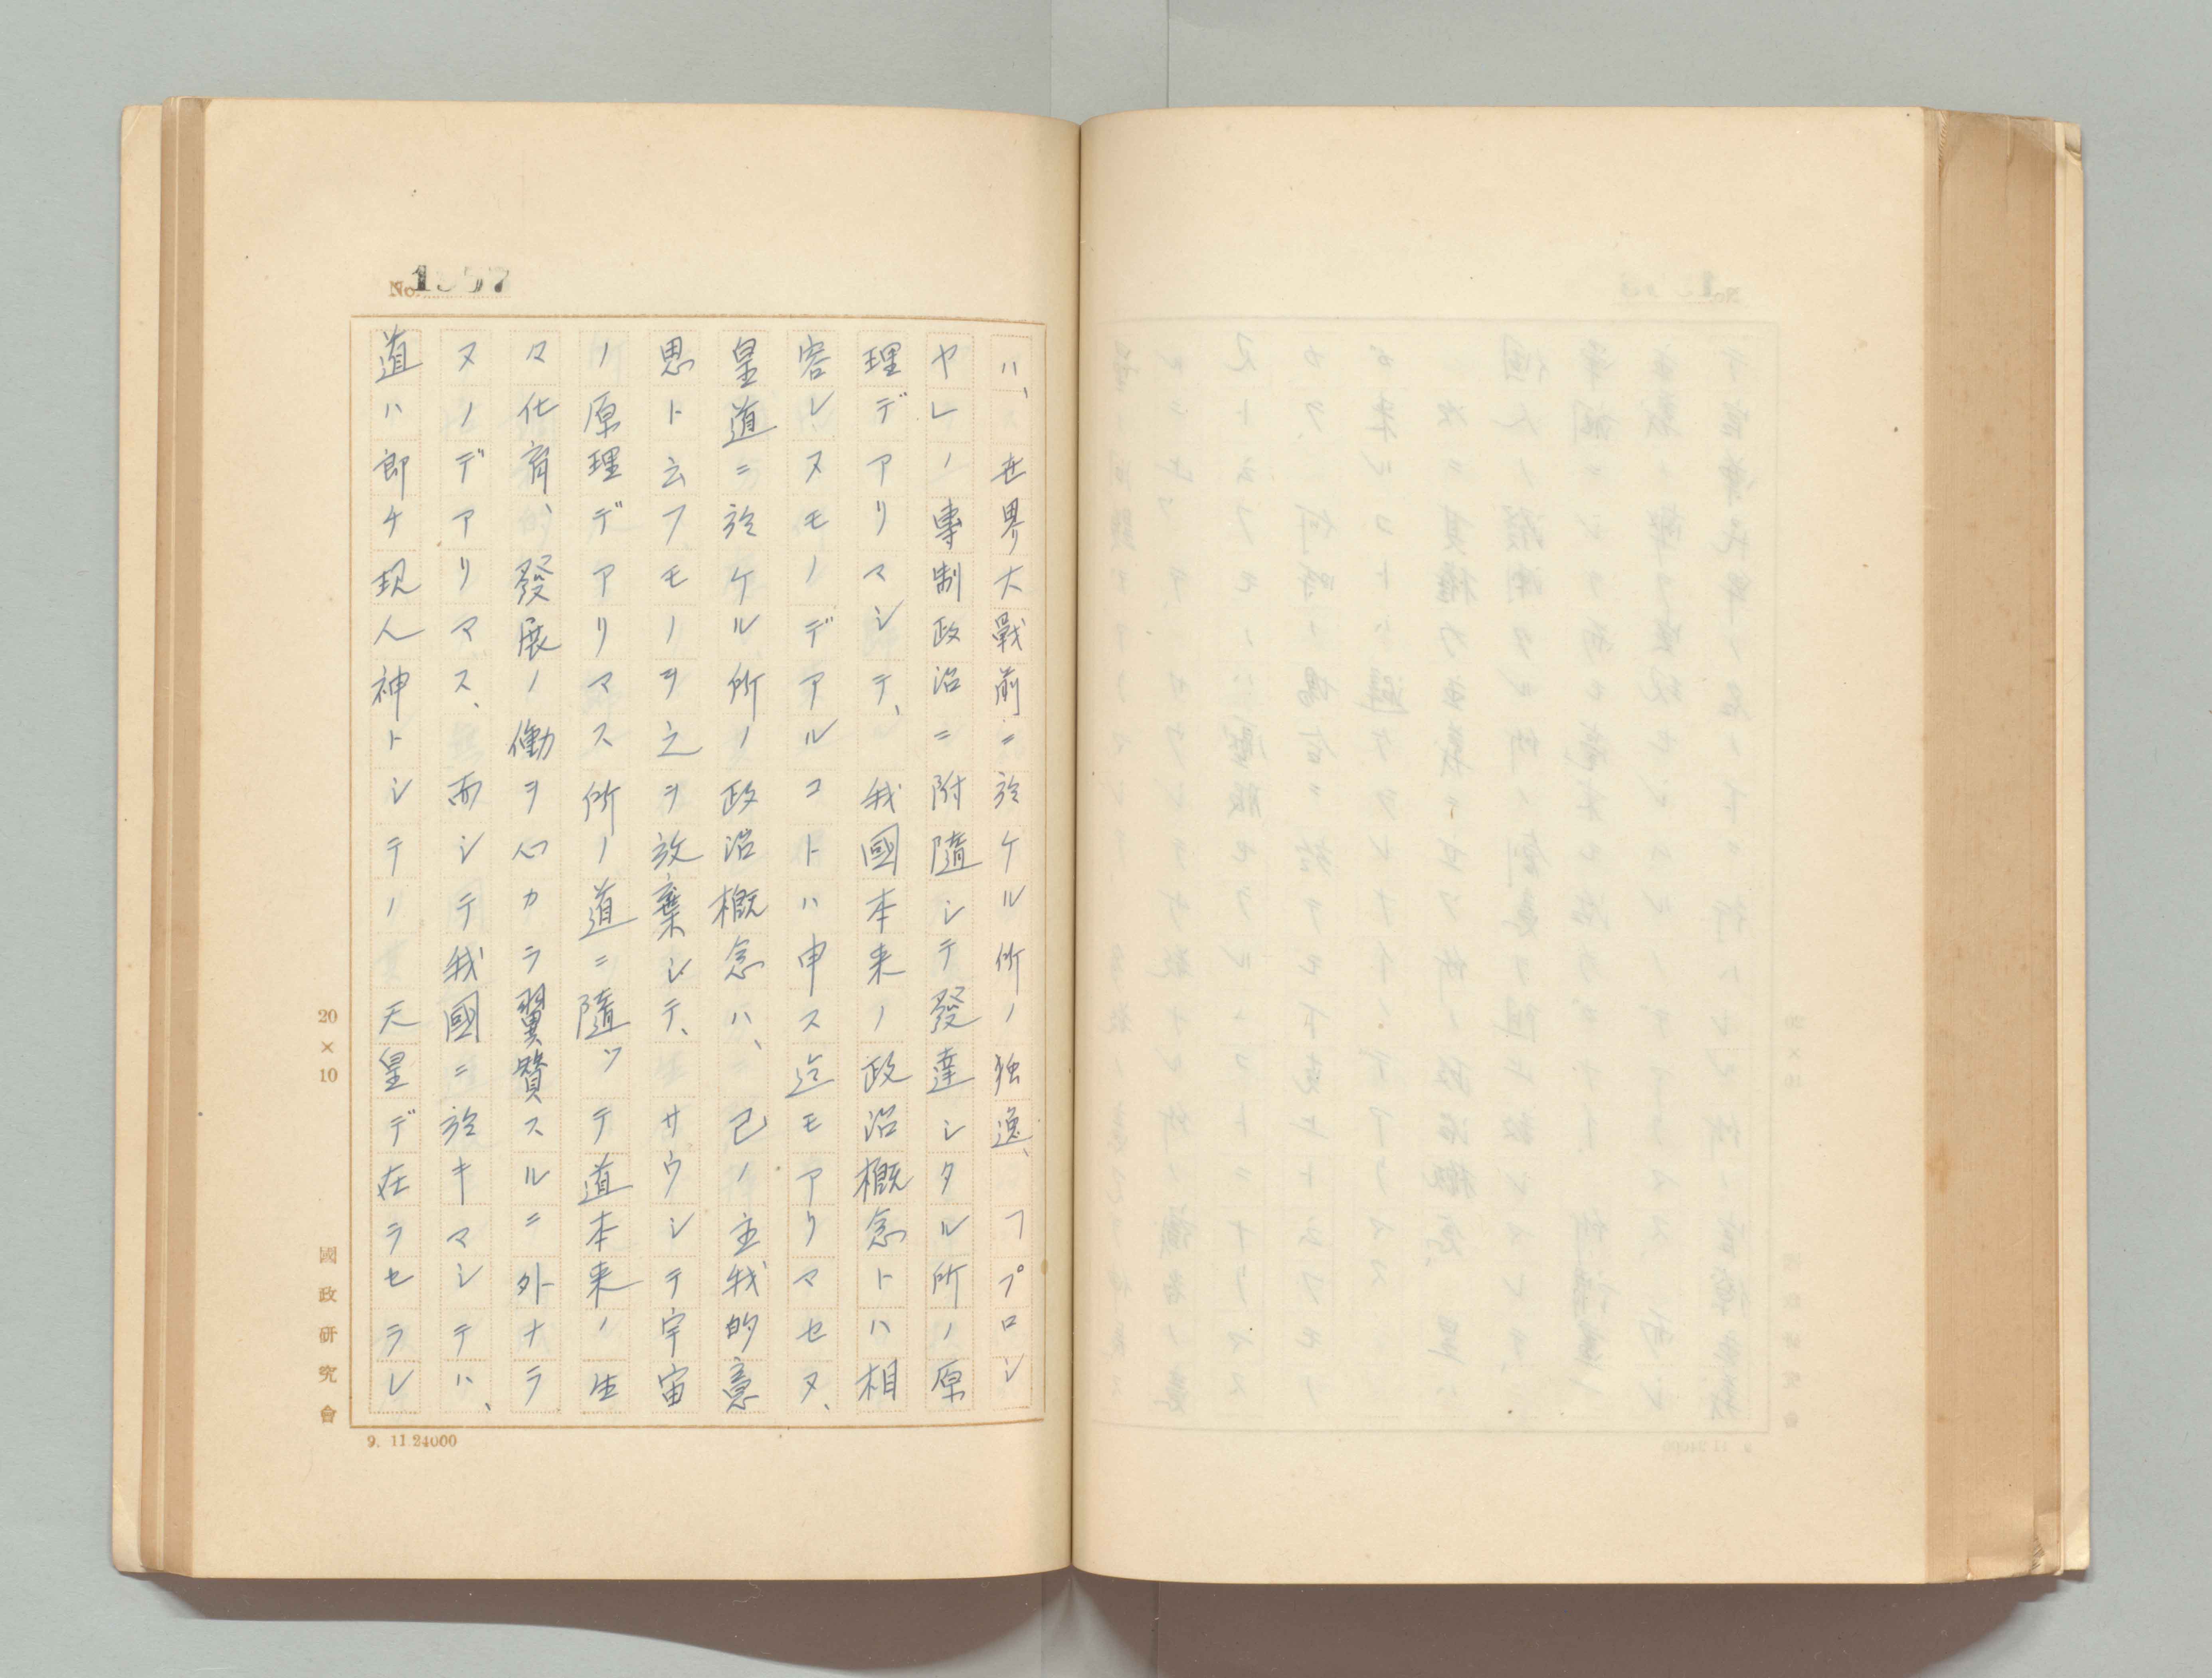 ハ、世界大戰前ニ於ケル所ノ独逸、フプロシ
ヤレノ專制政治ニ附隨シテ發達シタル所ノ原
理デアリマシテ、我國本来ノ政治概念トハ相
容レヌモノデアルコトハ申ス迄モアリマセヌ、
皇道ニ於ケル所ノ政治概念ハ、己ノ主我的意
思ト云フモノヲ之ヲ放棄シテ、サウシテ宇宙
ノ原理デアリマス所ノ道ニ隨ツテ道本来ノ生
々化育、發展ノ働ヲ心カラ翼贊スルニ外ナラ
ヌノデアリマス、而シテ我國ニ於キマシテハ、
道ハ即チ現人神トシテノ 天皇デ在ラセラレ
20×10
國政研究會
9. 11.24000